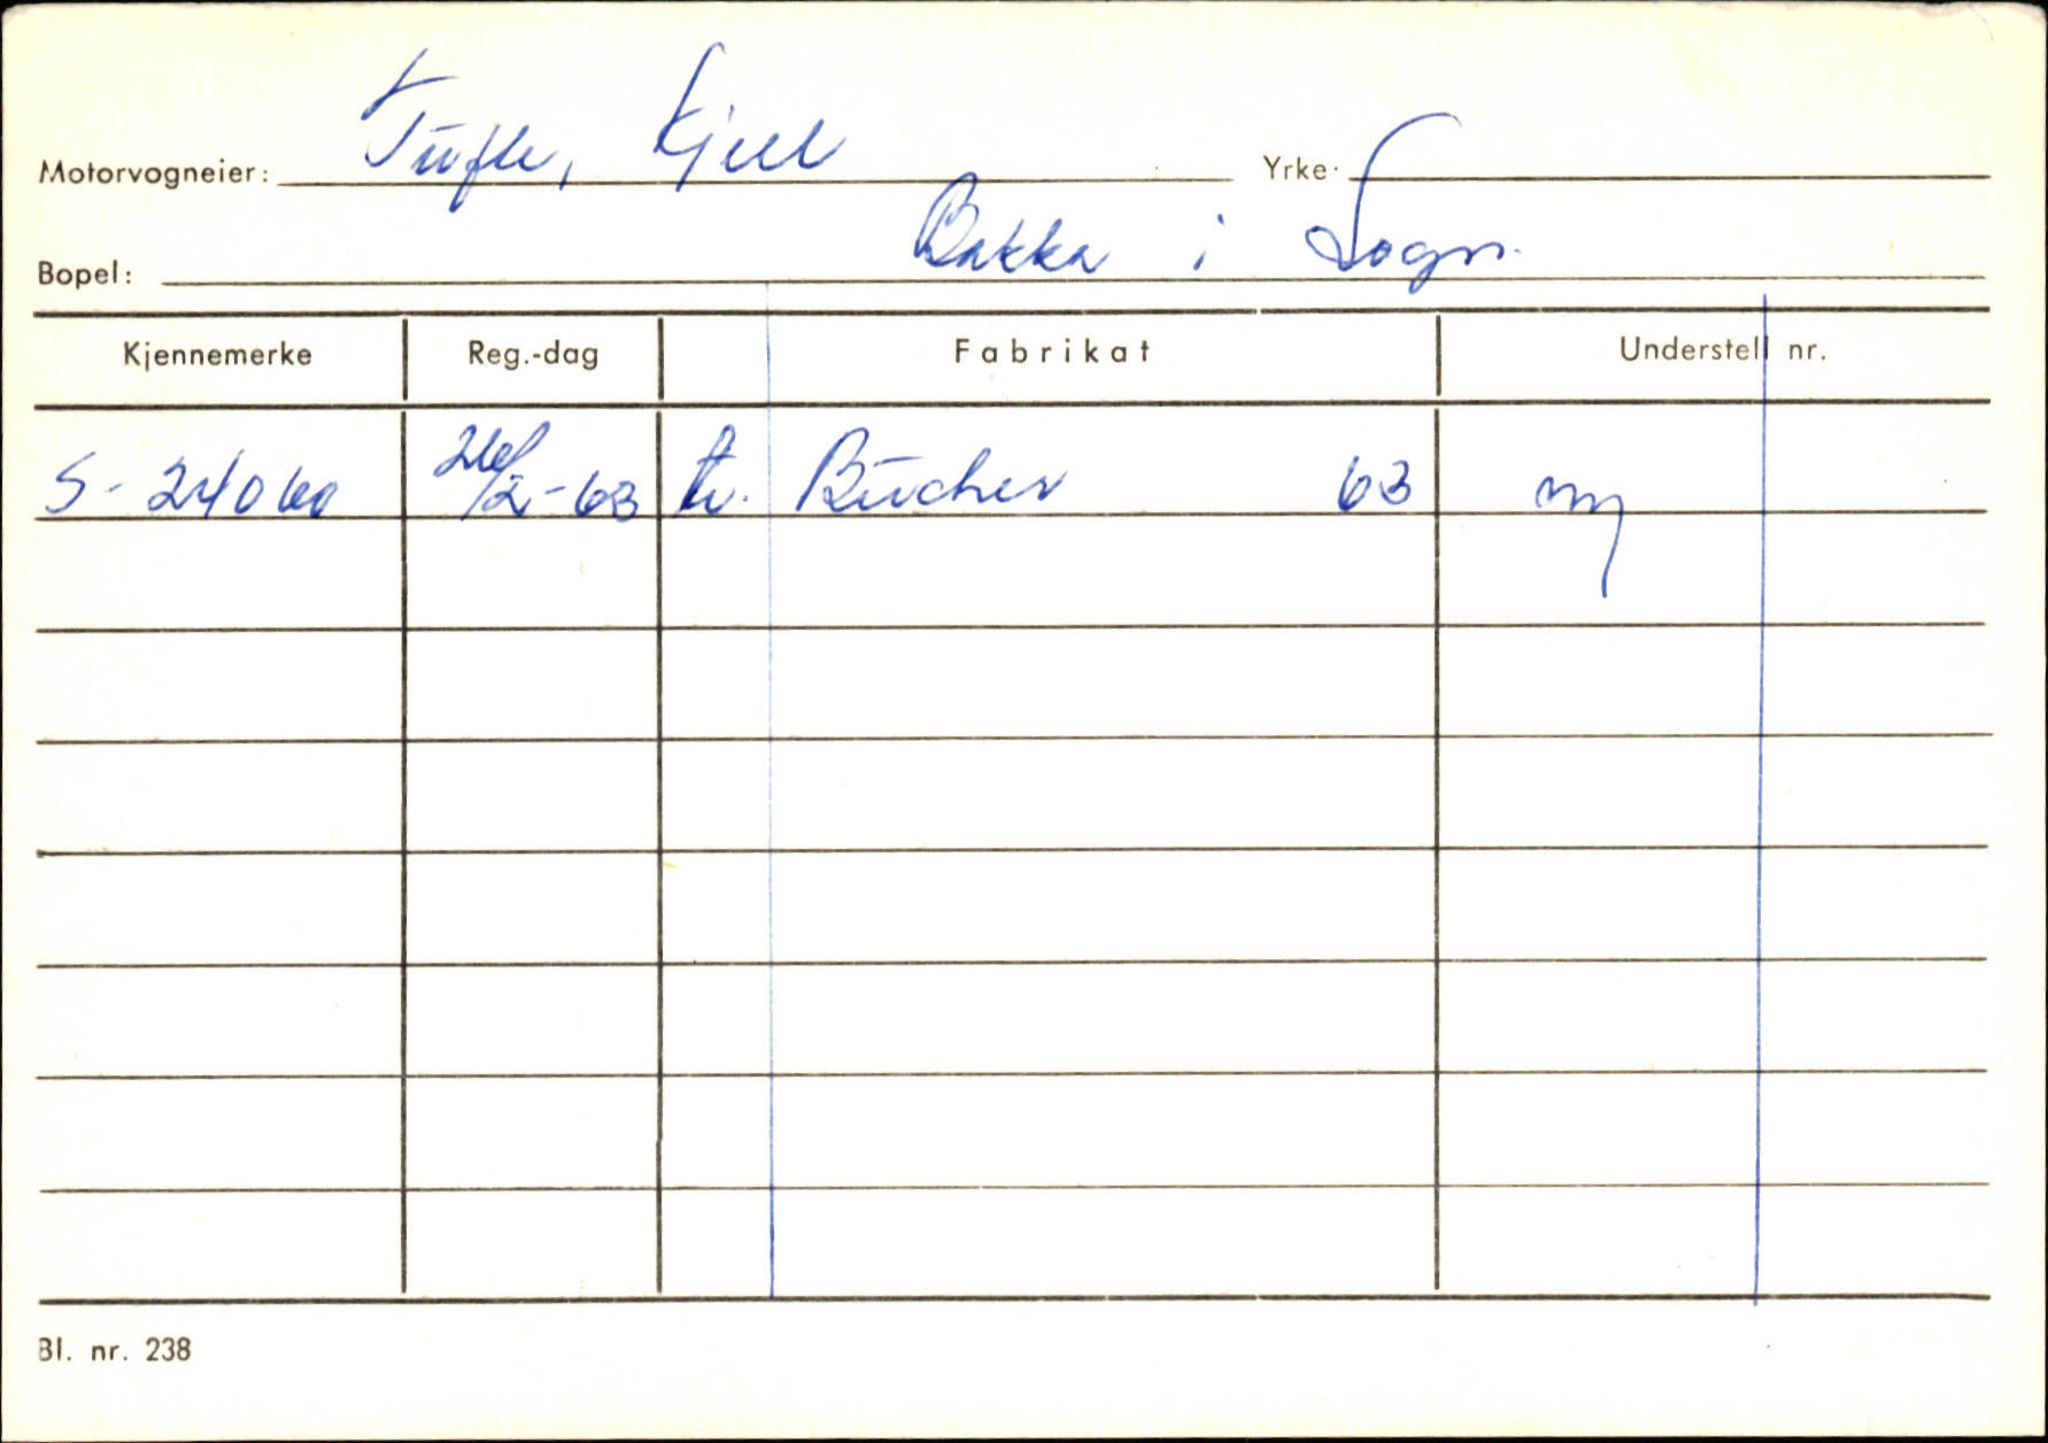 Motorvogneier: Tufte, Kjell Yrke:
Bopel: Bakka i Sogn.
Kjennemerke Reg.-dag Fabrikat Understell nr.
S-24060 26/2-63 tr. Bücher 63 ny
Bl. nr. 238